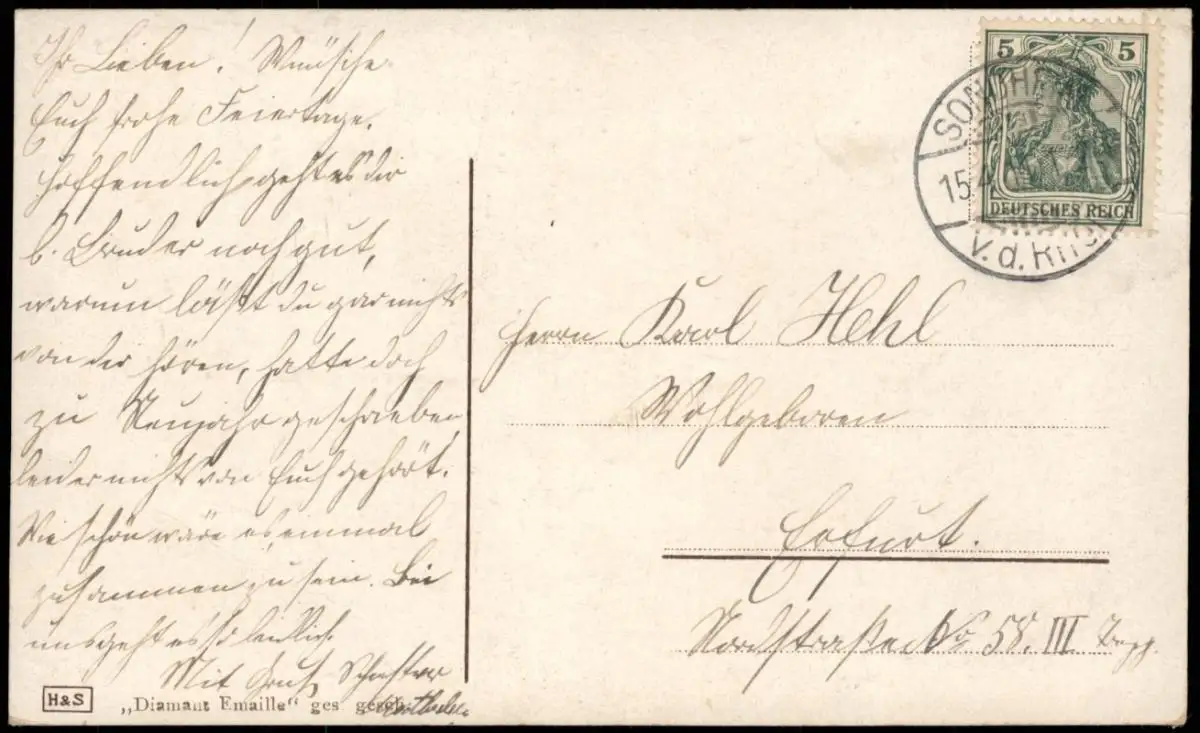 Ihr Lieben! Wünsche
Euch frohe Feiertage.
Hoffendlich geht es dir
l. Bruder noch gut,
warum läßt du gar nichts
von dir hören, hatte doch
zu Neujahr geschrieben
leider nichts von Euch gehört.
Wie schön wäre es, einmal
zusammen zu sein. Bei
uns geht es so leidlich.
Mit Gruß Schwester
H&S
„Diamant Emaille“ ges gesch
5 5
DEUTSCHES REICH
15.4
v. d. Rh
Herrn Karl Hehl
Wohlgeboren
Erfurt.
Nordstraße No 58. III Trepp.